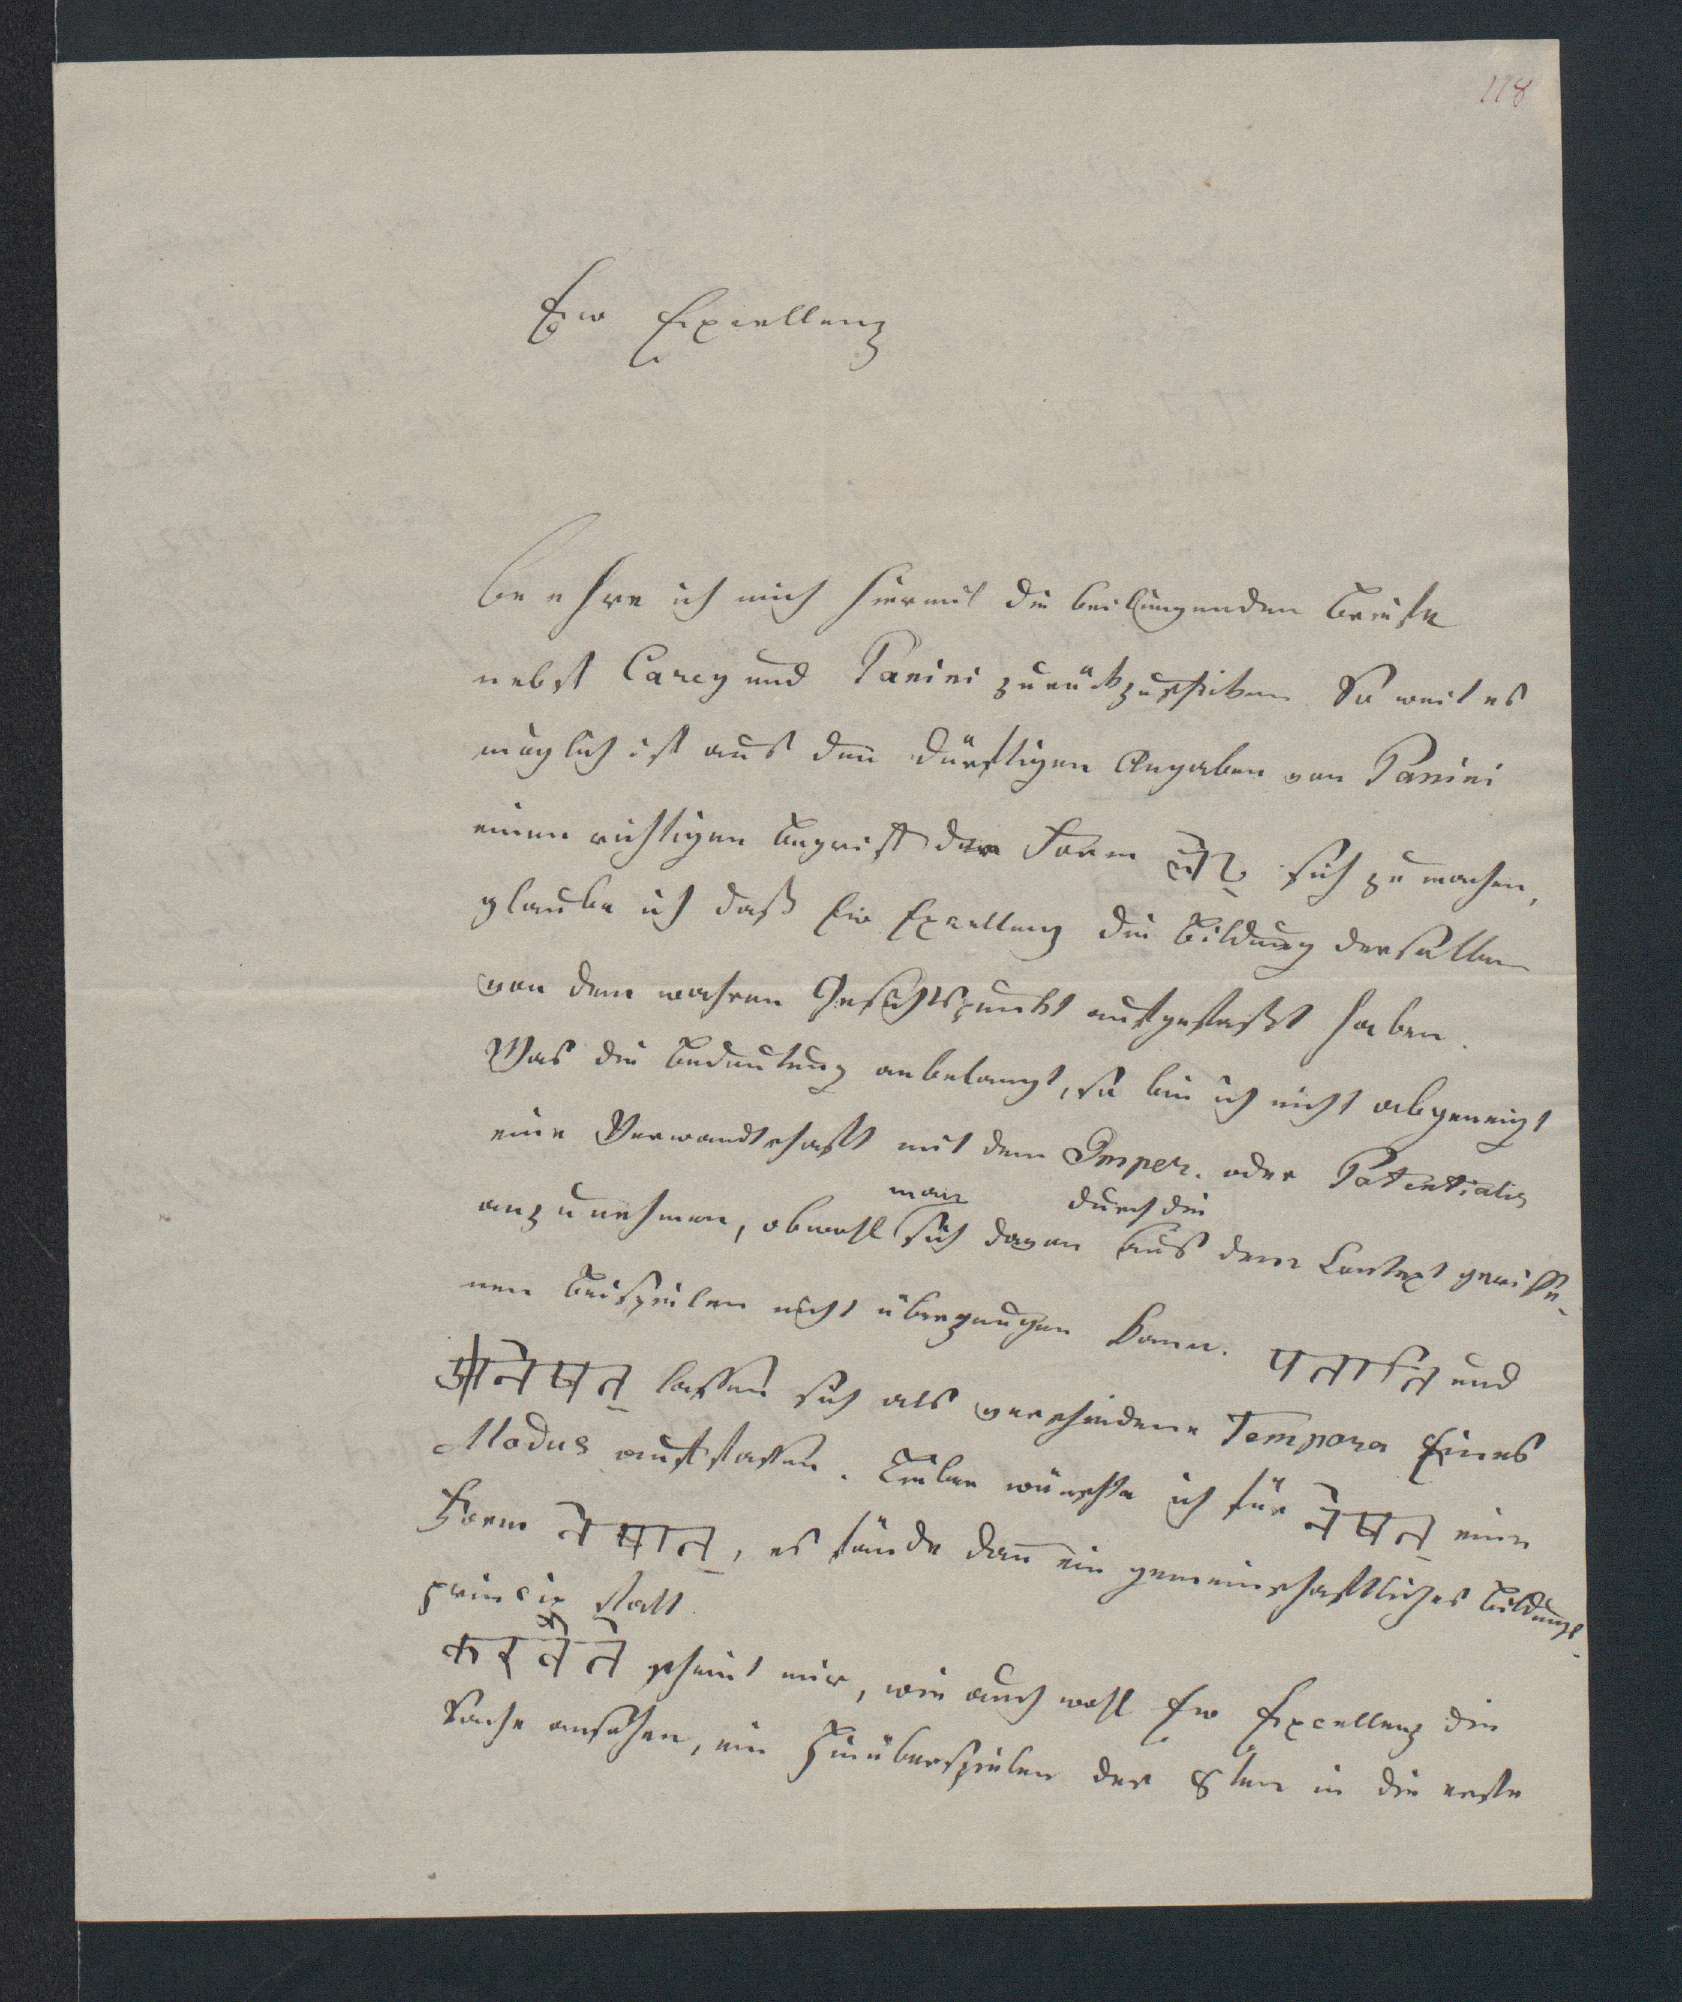 118
Ew Excellenz
beehre ich mich hiermit die beiliegenden Briefe
nebst Carey und Panini zurückzuschicken. So weit es
möglich ist aus den dürftigen Angaben von Panini
einen richtigen Begriff der Form लेट् sich zu machen,
glaube ich daß Ew Excellenz die Bildung derselben
von dem wahren Gesichtspunkt aufgefaßt haben.
Was die Bedeutung anbelangt, so bin ich nicht abgeneigt
eine Verwandtschaft mit dem Imper. oder Potentialis
man durch die
anzunehmen, obwohl sich davon aus dem Context gerisse-
nen Beispielen nicht überzeugen kann. पताति und
नेषत् lassen sich als verschiedene Tempora Eines
Modus auffassen. Lieber wünschte ich für नेषत् eine
Form नेषात्, es fände dann ein gemeinschaftliches Bildungs-
princip statt.
करवैते scheint mir, wie auch wohl Ew Excellenz die
Sache ansehen, ein Hinüberspielen der 8ten in die erste